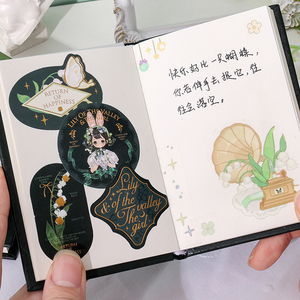 RETURN
OF
HAPPINESS
LILY OF THE VALLEY
Lily
& of the valley
The girl
快乐好比一只蝴蝶,
你若伸手去捉它,往
往会落空。